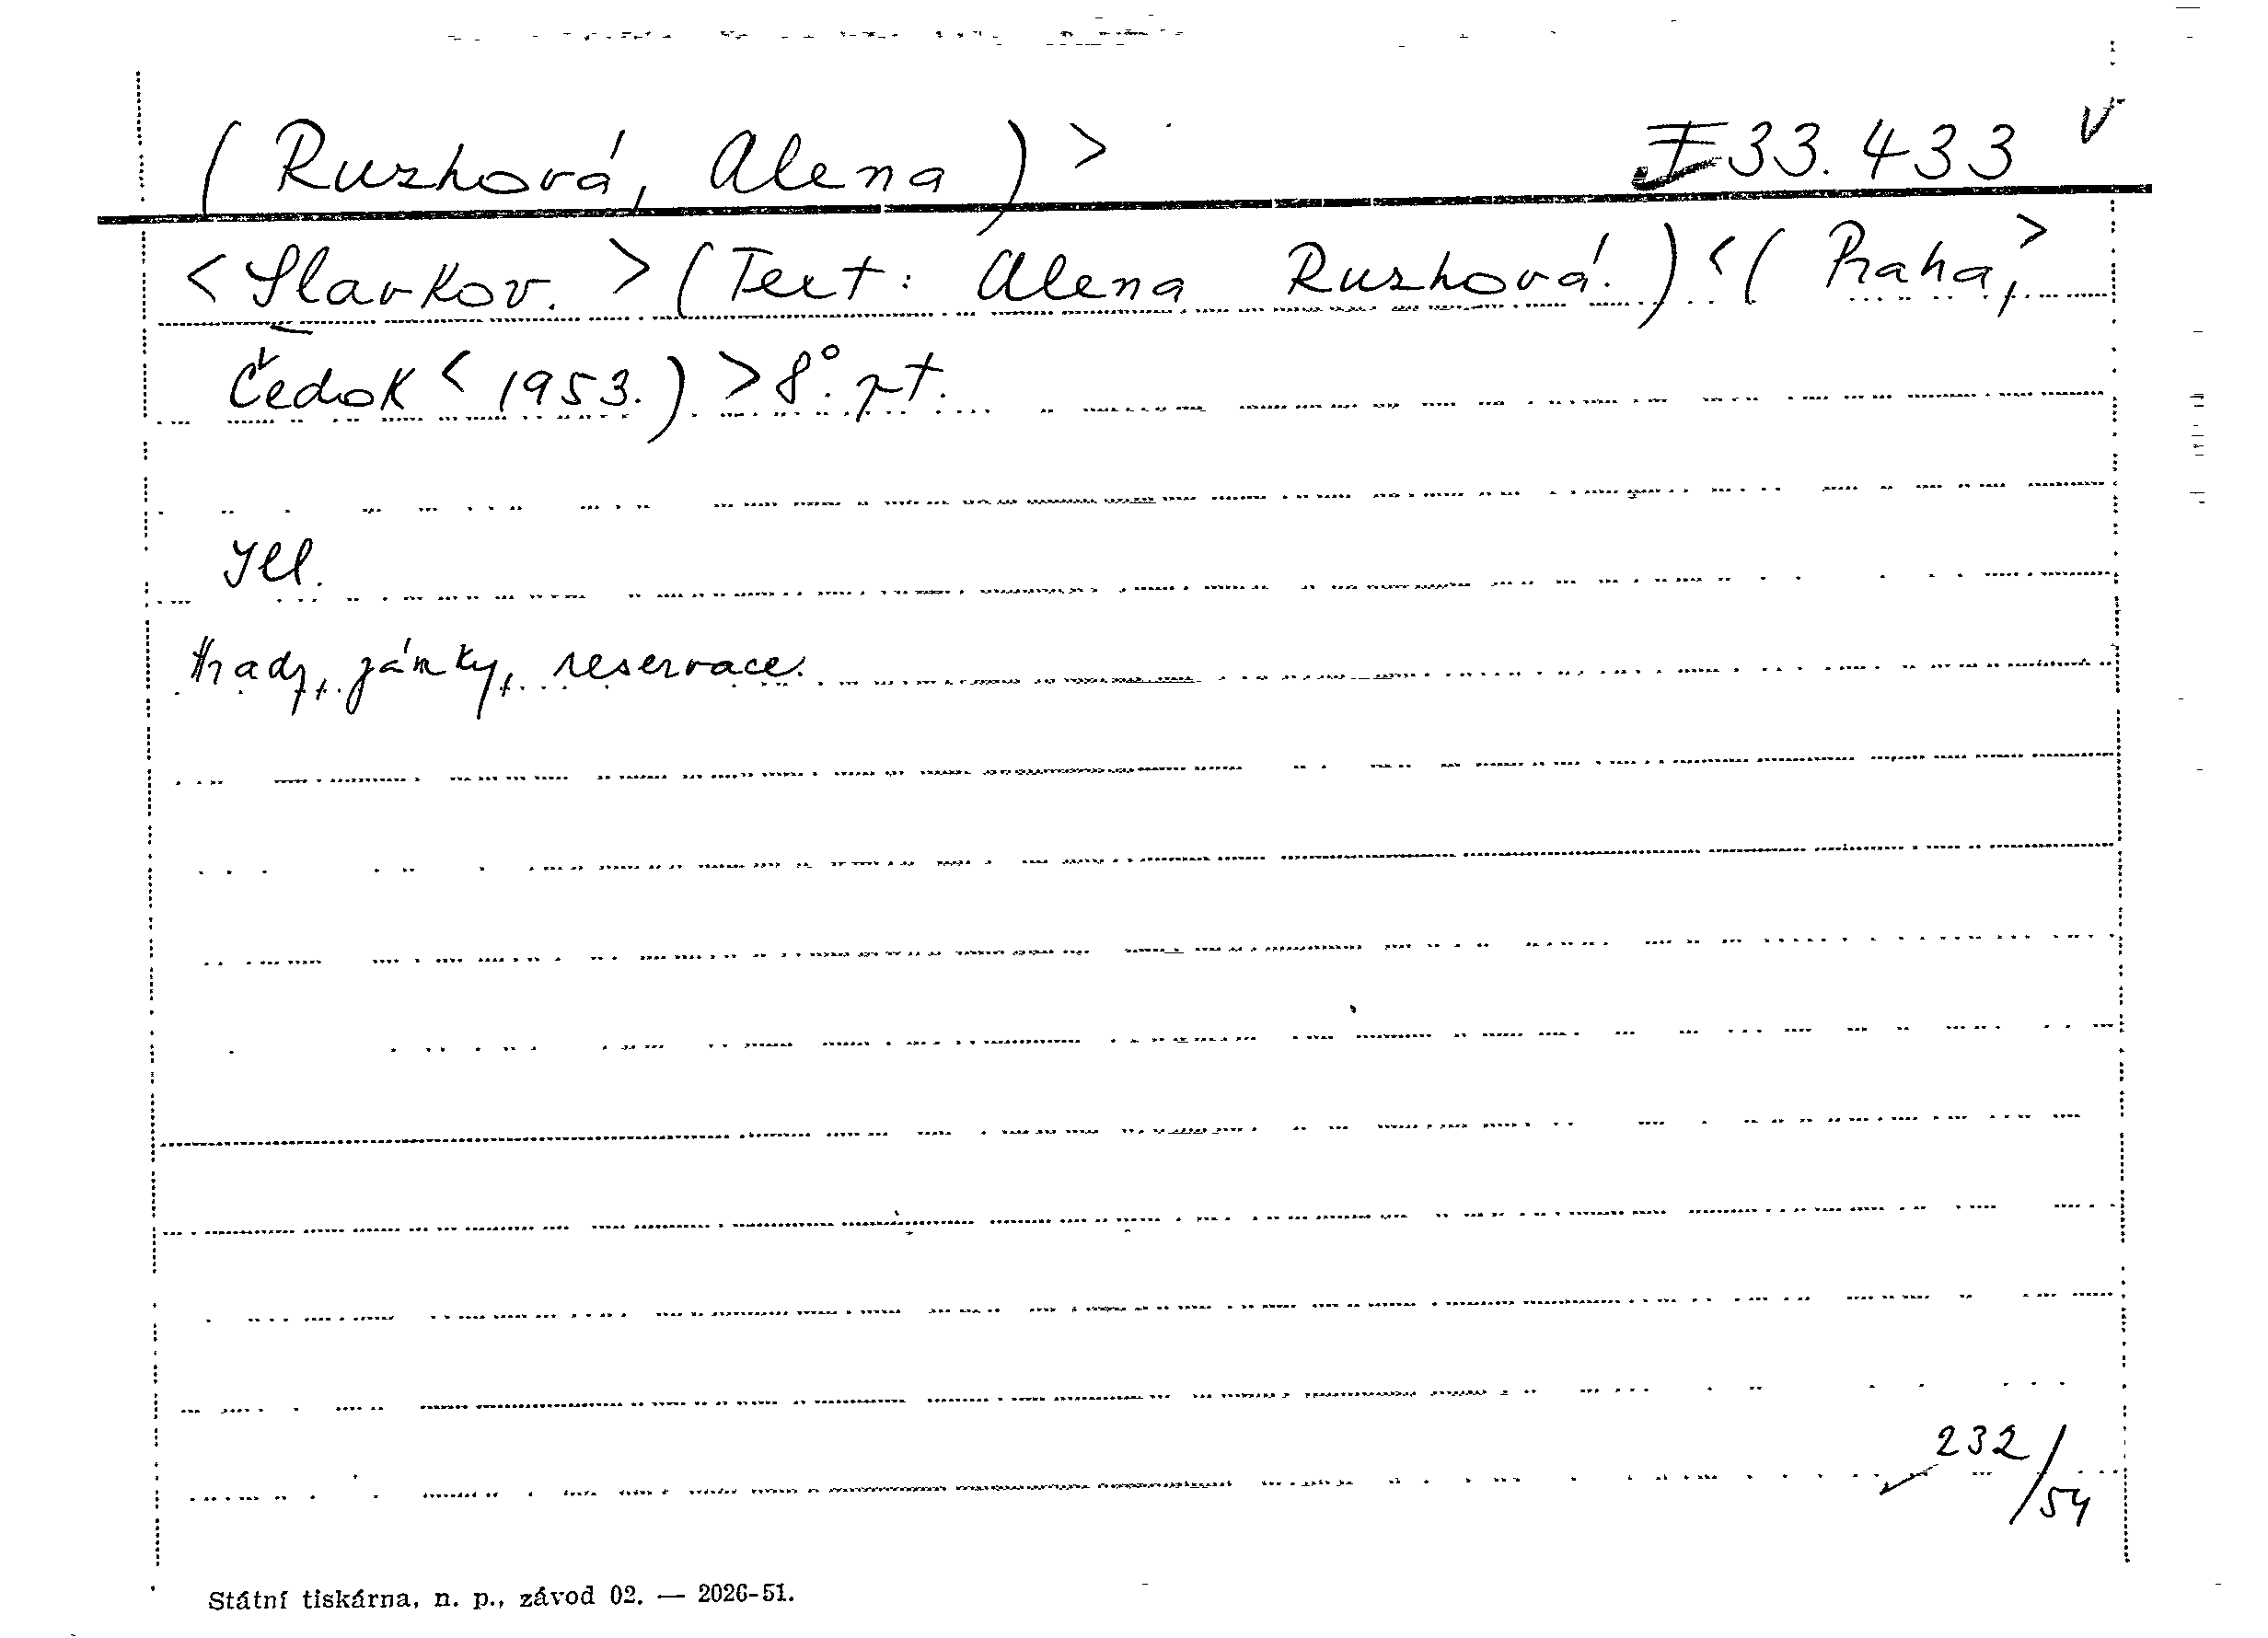 (Ruzhová, Alena)> I 33.433
<Slavkov.>(Text: Alena Ruzhová.)<(Praha,>
Čedok<1953.)>8°. pt.
Ill.
Hrady, zámky, reservace.
232/54
Státní tiskárna, n. p., závod 02. — 2026-51.